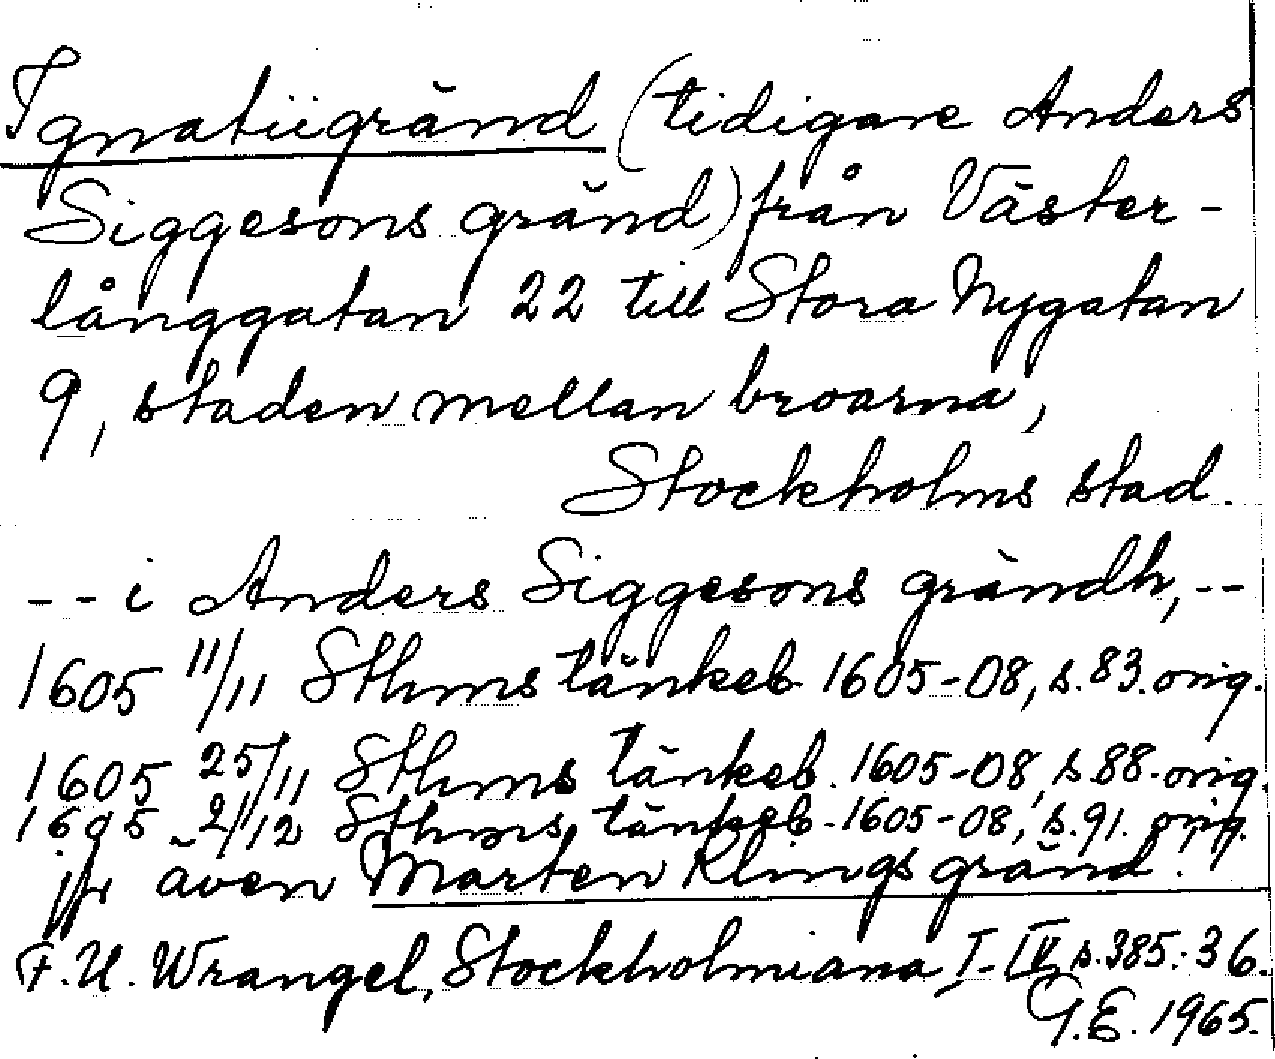 Ignatiigränd (tidigare Anders
Siggesons gränd) från Väster-
långgatan 22 till Stora Nygatan
9, staden mellan broarna,
Stockholms stad.
-- i Anders Siggesons grändh, --
1605 11/11 Sthms tänkeb 1605-08, s. 83. orig.
1605 25/11 Sthms tänkeb. 1605-08, s. 88. orig.
1605 2/12 Sthms tänkeb. 1605-08, s. 91. orig.
jfr även Marten Klings gränd.
F. U. Wrangel, Stockholmiana I-IV, s. 385: 36.
G.E. 1965.